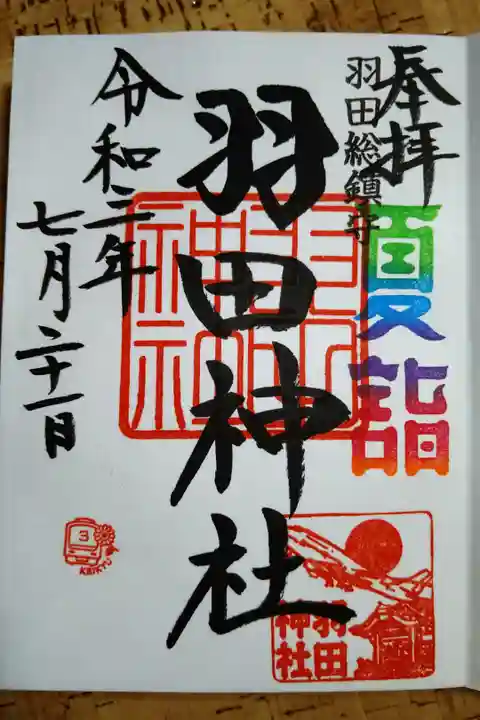 奉拝
夏詣
羽田総鎮守
羽田神社
令和三年
七月二十一日
羽田
神社
羽田
神社
3
KEIKYU